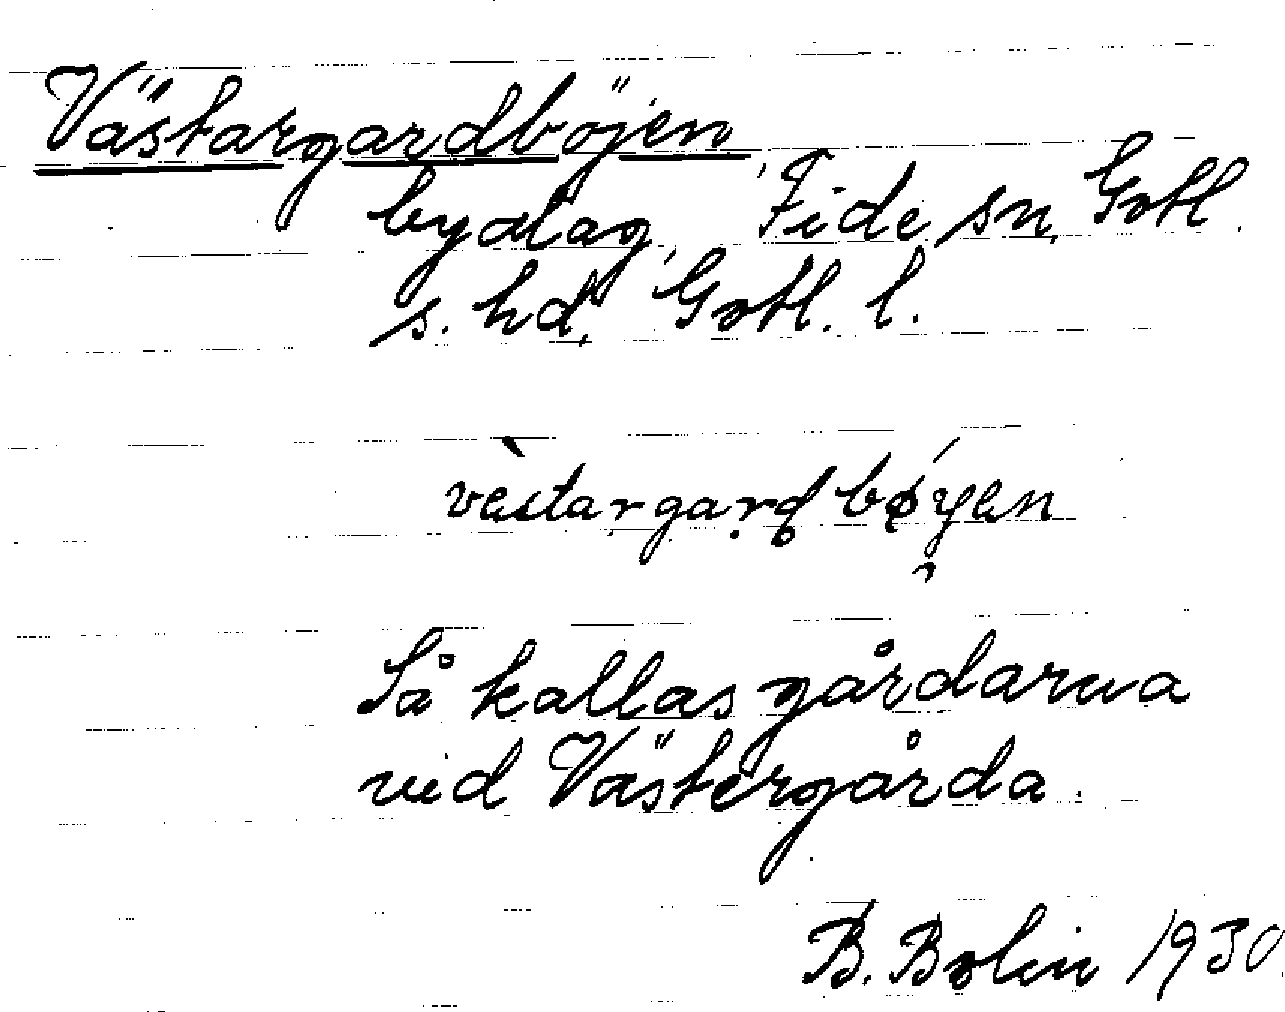 Västargardböjen
bydlag, Fide sn, Gotl.
s. hd, Gotl. l.
vèstargard bǿyen
Så kallas gårdarna
vid Västergårda.
B. Bolin 1930.